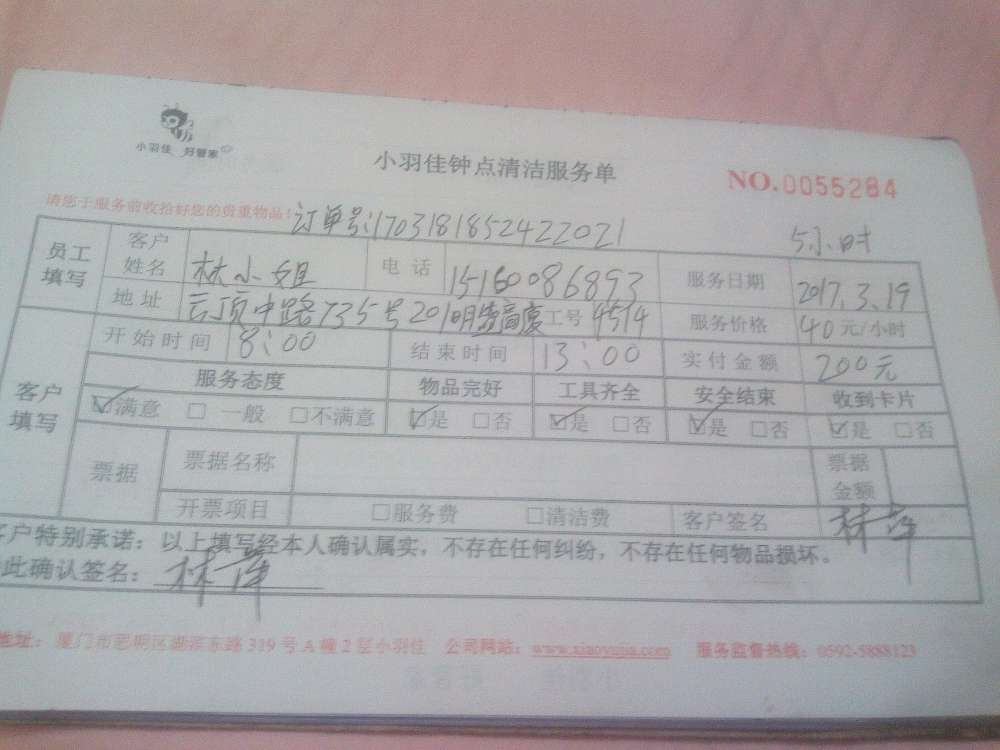 小羽佳 好管家
小羽佳钟点清洁服务单
NO.0055284
请您于服务前收拾好您的贵重物品!
订单号:1703181852422021
5小时
员工填写 客户姓名 林小姐 电话 15160086893 服务日期 2017.3.19
地址 云顶中路735号201明发高度 工号 4514 服务价格 40元/小时
客户填写 开始时间 8:00 结束时间 13:00 实付金额 200元
服务态度 物品完好 工具齐全 安全结束 收到卡片
☑满意 □一般 □不满意 ☑是 □否 ☑是 □否 ☑是 □否 ☑是 □否
票据 票据名称 票据金额
开票项目 □服务费 □清洁费 客户签名 林萍
客户特别承诺:以上填写经本人确认属实,不存在任何纠纷,不存在任何物品损坏。
此确认签名: 林萍
地址:厦门市思明区湖滨东路319号A幢2层小羽佳 公司网站:www.xiaoyujia.com 服务监督热线:0592-5888123